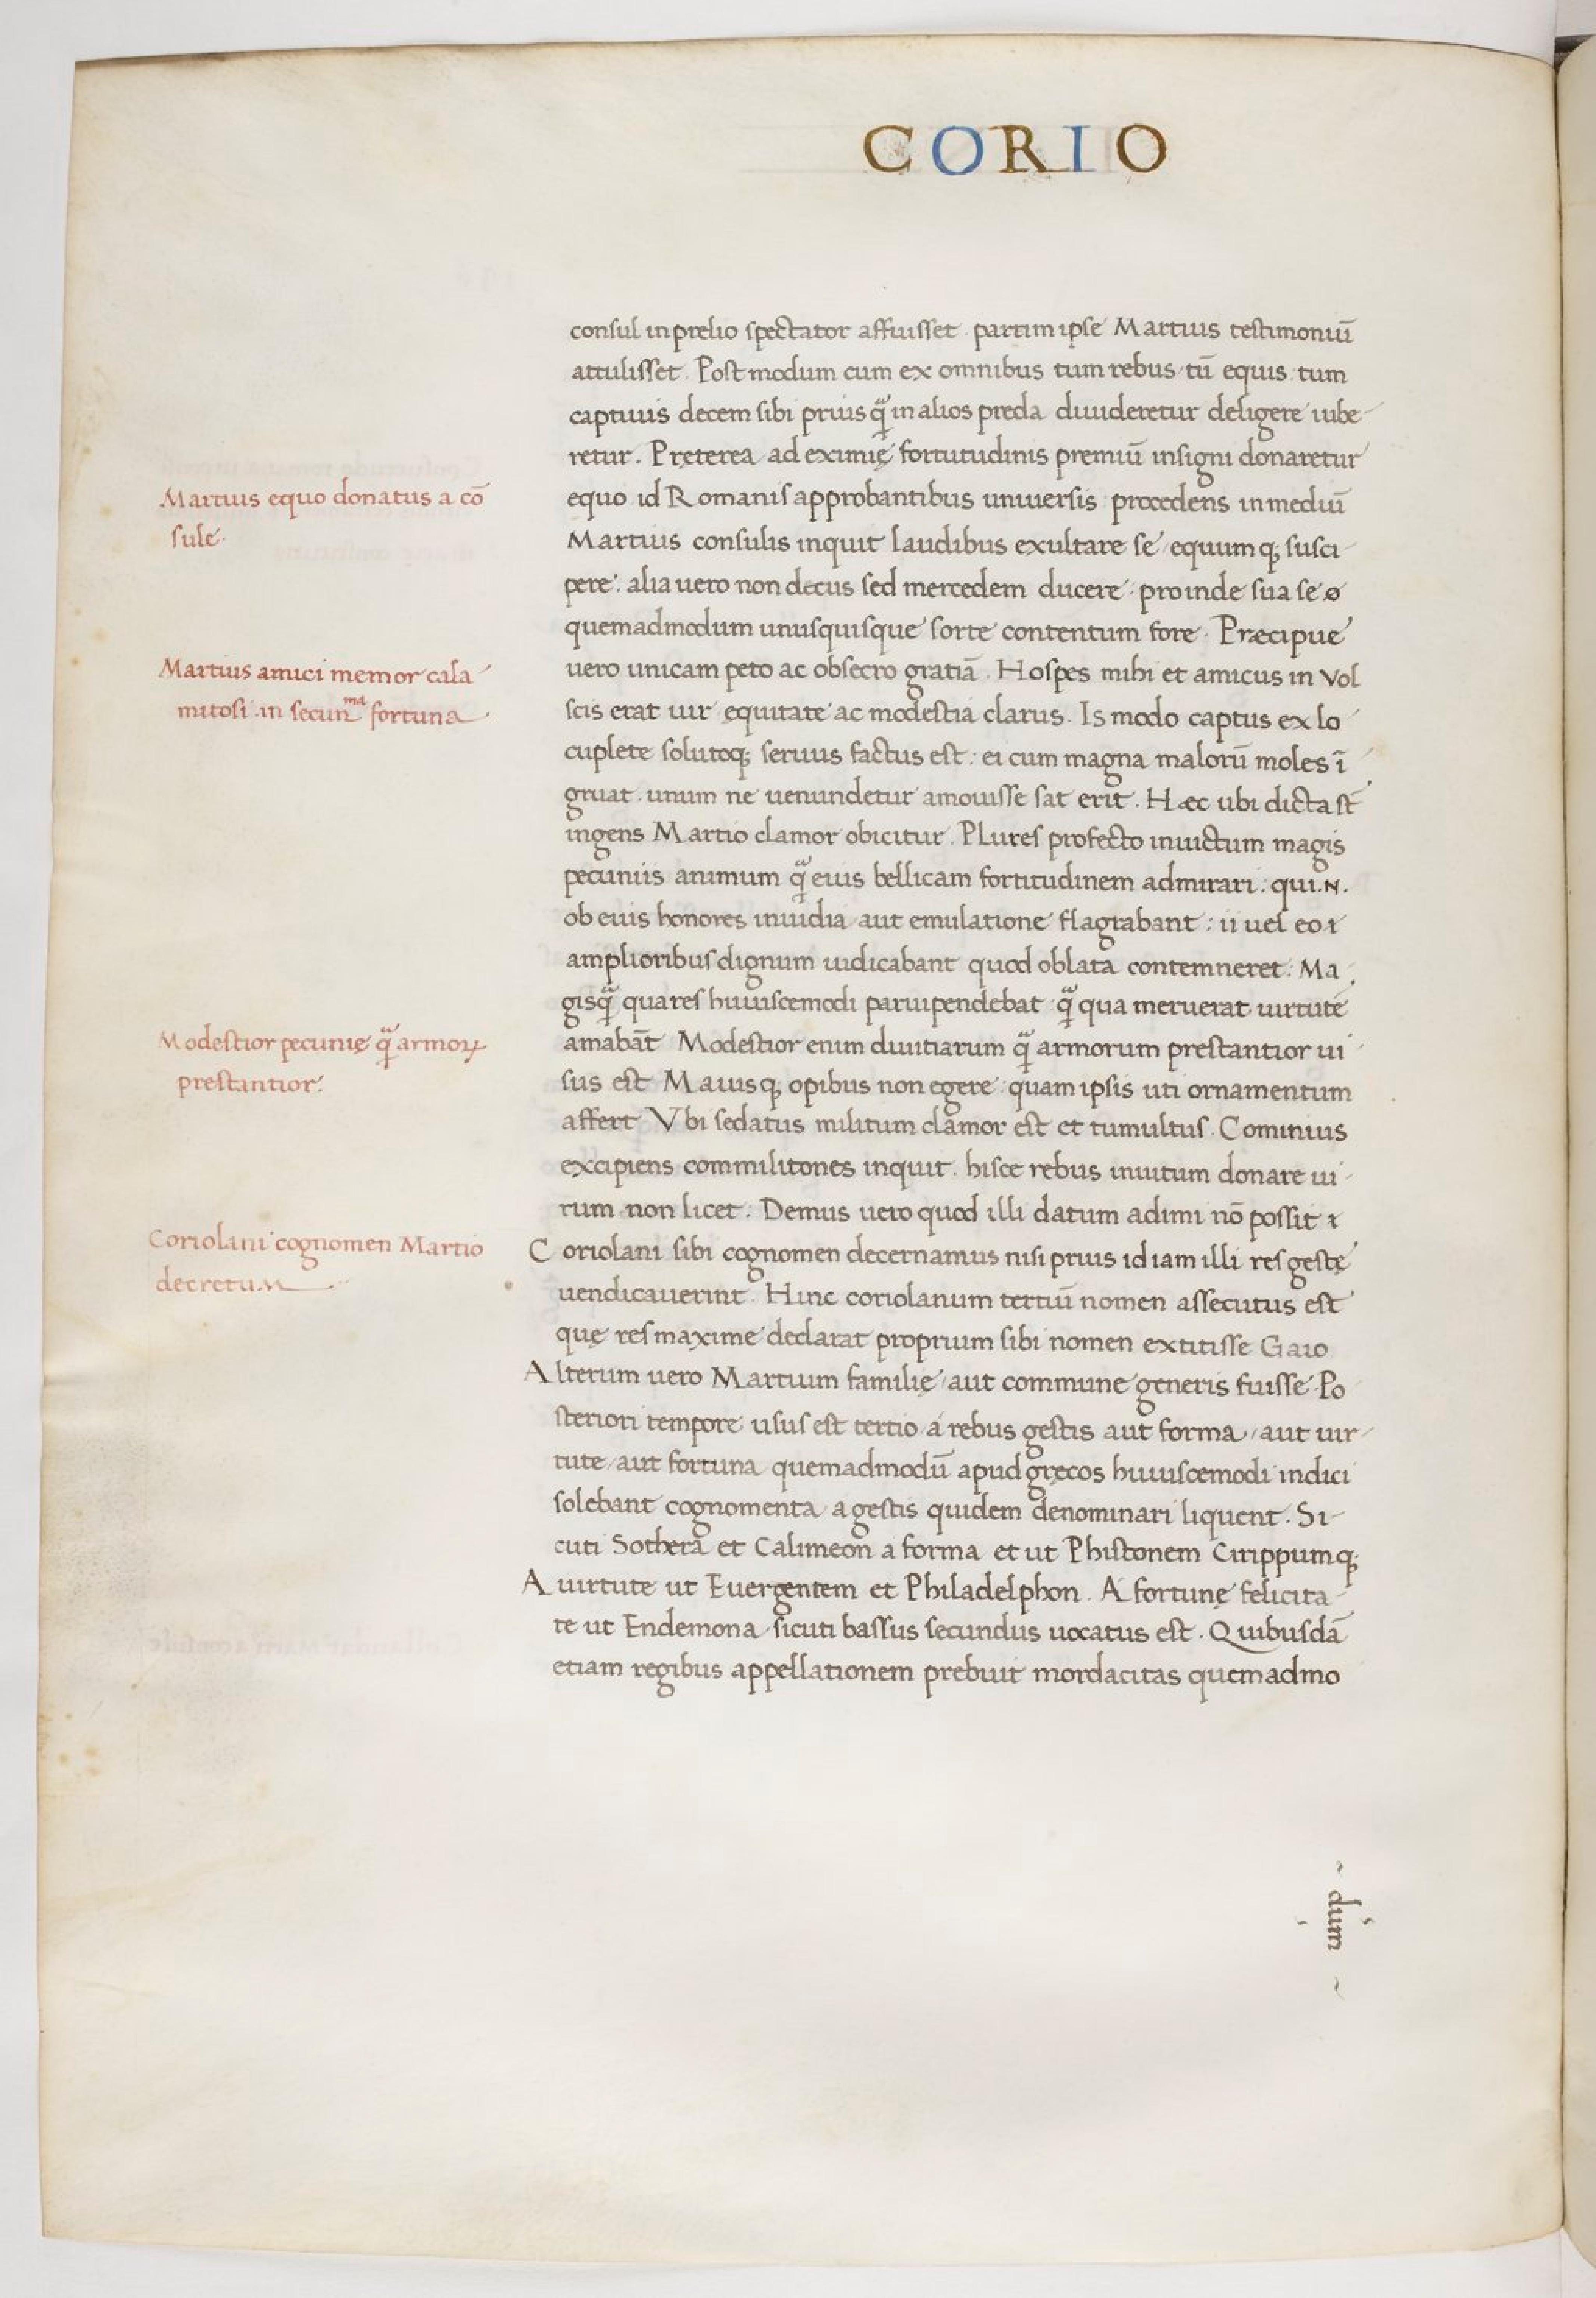 CORIO
consul in prelio spectator affuisset . partim ipse Martius testimoniū
attulisset . Postmodum cum ex omnibus tum rebus / tū equis tum
captiuis decem sibi prius q̄ in alios preda diuideretur deligere iube-
retur . Pręterea ad eximię fortitudinis premiū insigni donaretur
equo id Romanis approbantibus uniuersis procedens in mediū
Martius consulis inquit laudibus exultare se / equumq; susci-
pere : alia uero non decus sed mercedem ducere : proinde sua se ø
quemadmodum unusquisque sorte contentum fore . Præcipue
uero unicam peto ac obsecro gratiā . Hospes mihi et amicus in Vol
scis erat uir equitate ac modestia clarus . Is modo captus ex lo
cuplete solutoq; seruus factus est : ei cum magna malorū moles ī
gruat . unum ne uenundetur amouisse sat erit . Hæc ubi dicta st̄
ingens Martio clamor obicitur . Plures profecto inuictum magis
pecuniis animum q̄ eius bellicam fortitudinem admirari : qui .N.
ob eius honores inuidia aut emulatione flagrabant : ii uel eo ı
amplioribus dignum iudicabant quod oblata contemneret . Ma
gisq̄ qua res huiuscemodi paruipendebat q̄ qua meruerat uirtute
amabāt Modestior enim diuitiarum q̄ armorum prestantior ui-
sus est Mauisq; opibus non egere quam ipsis uti ornamentum
affert Vbi sedatus militum clamor est et tumultus . Cominius
excipiens commilitones inquit . hisce rebus inuitum donare ui-
rum non licet . Demus uero quod illi datum adimi nō possit ı
Coriolani sibi cognomen decernamus nisi prius id iam illi res gestę
uendicauerint . Hinc coriolanum tertiū nomen assecutus est
quę res maxime declarat proprium sibi nomen extitisse Gaio
Alterum uero Martium familię / aut commune generis fuisse . Po
steriori tempore usus est tertio á rebus gestis aut forma / aut uir-
tute / aut fortuna quemadmodū apud gręcos huiuscemodi indici
solebant cognomenta a gestis quidem denominari liquent . Si-
cuti Sotherā et Calimeon a forma et ut Phistonem Cirippumq;
A uirtute ut Euergentem et Philadelphon . A fortunę felicita-
te ut Endemona sicuti bassus secundus uocatus est . Quibusdā
etiam regibus appellationem prebuit mordacitas quemadmo
dum
Martius equo donatus a cō
sule .
Martius amici memor cala
mitosi in secunᵐᵃ fortuna
Modestior pecunię q̄ armoꝝ
prestantior .
Coriolani cognomen Martio
decretum